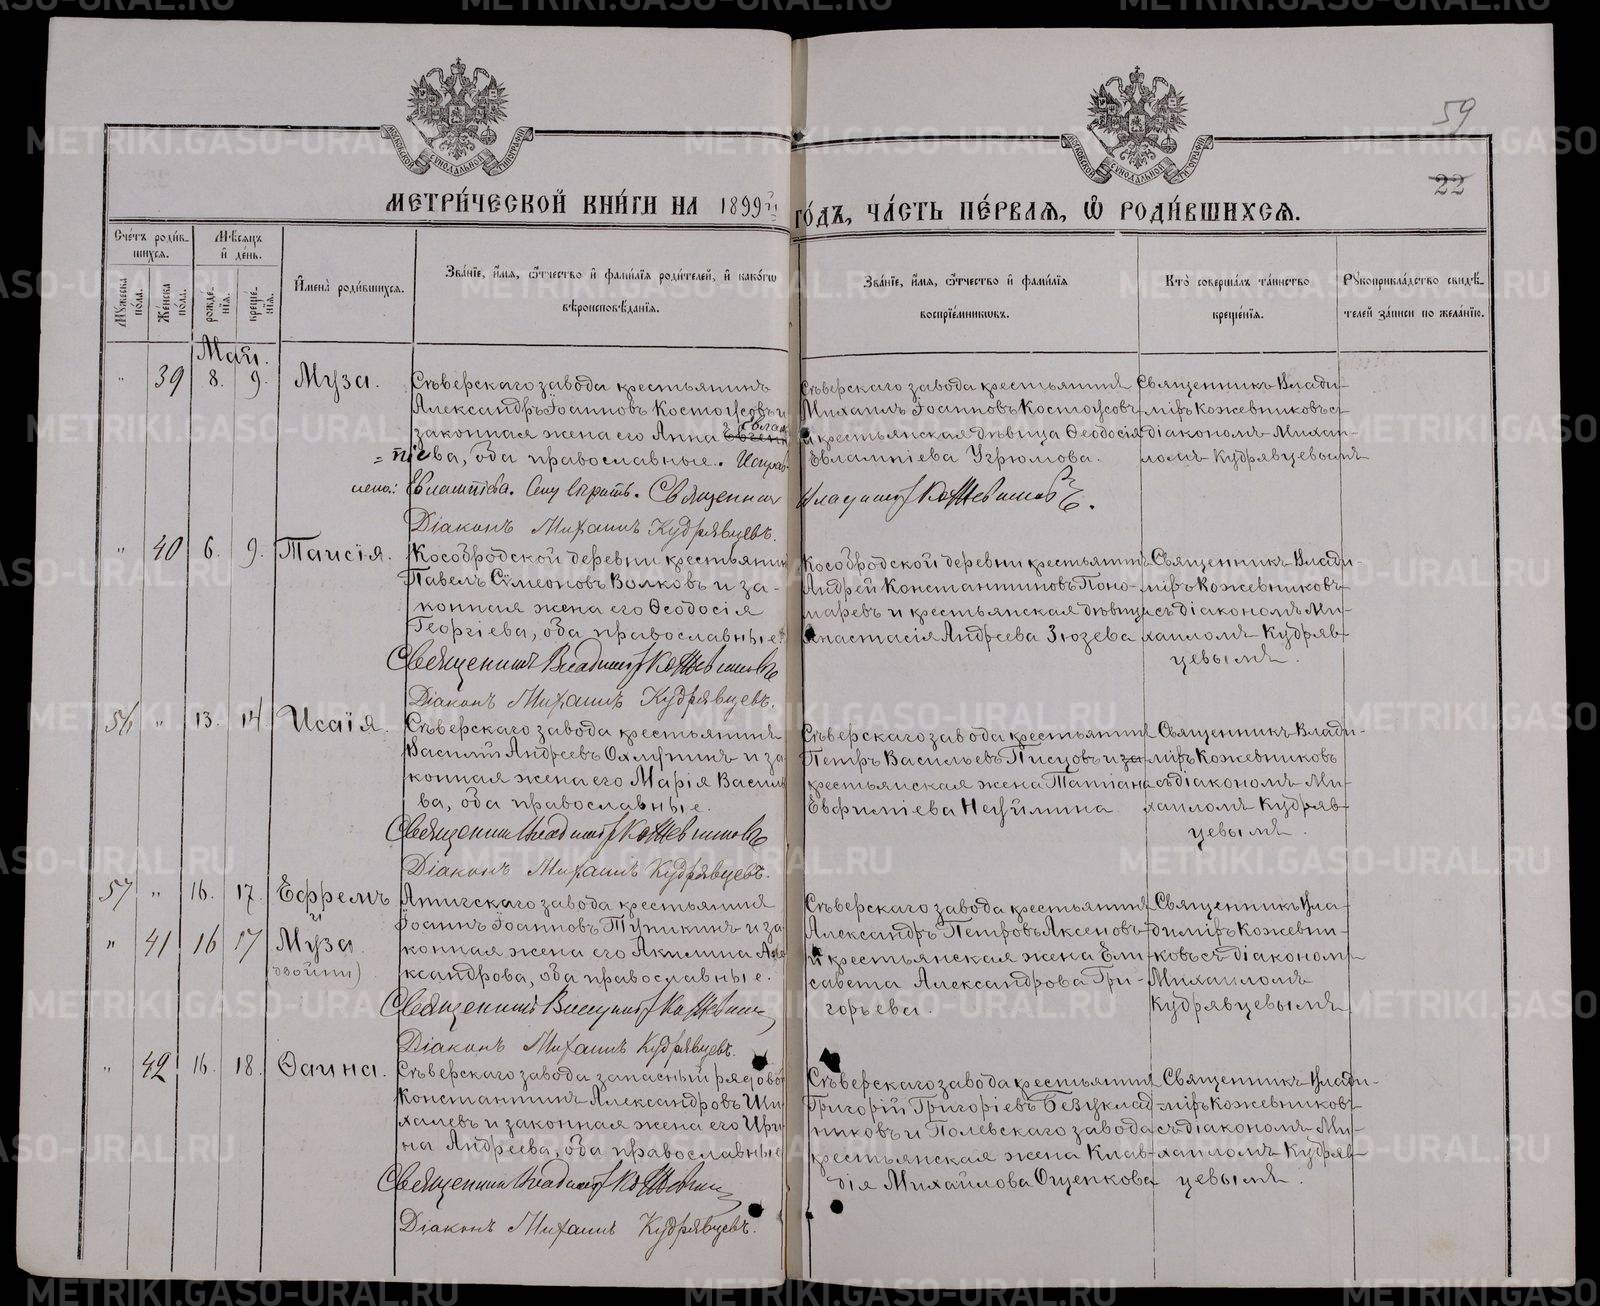 59
22
МЕТРИ́ЧЕСКОЙ КНИ́ГИ НА 1899й ГО́ДЪ, ЧА́СТЬ ПЕ́РВАЯ, Ѡ РОДИ́ВШИХСЯ.
Сче́тъ роди́в-
шихся.
Му́жеска
по́ла.
Же́нска
по́ла.
Мѣ́сяцъ
и҆ де́нь.
рожде́-
нїя.
креще́-
нїя.
И҆мена̀ роди́вшихся.
Зва́нїе, и҆́мя, ѻ҆́тчество и҆ фами́лїя роди́телей, и҆ како́гѡ
вѣроисповѣ́данїя.
Зва́нїе, и҆́мя, ѻ҆́тчество и҆ фами́лїя
воспрїе́мникѡвъ.
Кто̀ соверша́лъ та́инство
креще́нїя.
Рꙋкоприкла́дство свидѣ́-
телей за́писи по жела́нїю.
Май.
" 39 8. 9. Муза.
Сѣверскаго завода крестьянинъ
Александръ Іоанновъ Костоусовъ и
законная жена его Анна
піева, оба православные. Исправ-
лено: Евлампіева. Священникъ
Владиміръ Кожевниковъ.
Діаконъ Михаилъ Кудрявцевъ.
Сѣверскаго завода крестьянинъ
Михаилъ Іоанновъ Костоусовъ
и крестьянская дѣвица Ѳеодосія
Евлампіева Угрюмова.
Священникъ Влади-
міръ Кожевниковъ съ
діакономъ Михаи-
ломъ Кудрявцевымъ
" 40 6. 9. Таисія.
Кособродской деревни крестьянинъ
Павелъ Сѵмеоновъ Волковъ и за-
конная жена его Ѳеодосія
Георгіева, оба православные.
Священникъ Владиміръ Кожевниковъ
Діаконъ Михаилъ Кудрявцевъ.
Кособродской деревни крестьянинъ
Андрей Константиновъ Поно-
маревъ и крестьянская дѣвица
Анастасія Андреева Зюзева
Священникъ Влади-
міръ Кожевниковъ
съ діакономъ Ми-
хаиломъ Кудряв-
цевымъ.
56 " 13. 14. Исаія.
Сѣверскаго завода крестьянинъ
Василій Андреевъ и за-
конная жена его Марія Василье-
ва, оба православные.
Священникъ Владиміръ Кожевниковъ
Діаконъ Михаилъ Кудрявцевъ.
Сѣверскаго завода крестьянинъ
Петръ Васильевъ Писцовъ и за-
крестьянская жена Татіана
Евфиміева
Священникъ Влади-
міръ Кожевниковъ
съ діакономъ Ми-
хаиломъ Кудряв-
цевымъ.
57 " 16. 17. Ефремъ
и
" 41 16 17 Муза
двойни)
Атигскаго завода крестьянинъ
Іоаннъ Іоанновъ Тупикинъ и за-
конная жена его Акилина Але-
ксандрова, оба православные.
Священникъ Владиміръ Кожевник
Діаконъ Михаилъ Кудрявцевъ.
Сѣверскаго завода крестьянинъ
Александръ Петровъ Аксеновъ
и крестьянская жена Ели-
савета Александрова Гри-
горьева.
Священникъ Вла-
диміръ Кожевни-
ковъ съ діакономъ
Михаиломъ
Кудрявцевымъ
" 42 16. 18. Ѳаина.
Сѣверскаго завода запасный рядовой
Константинъ Александровъ Ши-
халевъ и законная жена его Ири-
на Андреева, оба православные
Священникъ Владиміръ Кожевник
Діаконъ Михаилъ Кудрявцевъ.
Сѣверскаго завода крестьянинъ
Григорій Григоріевъ Безуклад-
никовъ и Полевскаго завода
крестьянская жена Клав-
дія Михайлова Ощепкова
Священникъ Влади-
міръ Кожевниковъ
съ діакономъ Ми-
хаиломъ Кудряв-
цевымъ.
METRIKI.GASO-URAL.RU